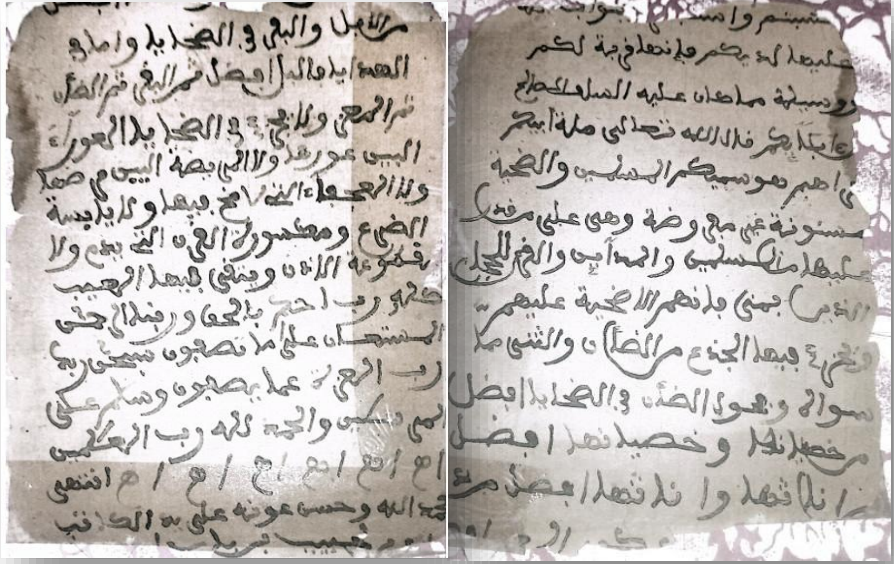 عليها لديكم فإنها قربة لكم
ووسيلة مما كان عليه السلف الصالح
وءابآءكم قال الله تعالى ملة أبيكم
إبراهيم هو سميكم المسلمين والضحية
مسنونة غير مفروضة وهي على من قدر
عليها من المسلمين
الذين بمنى فإنهم لا ضحية عليهم
وتجزئ فيها الجذع من الضأن والثني مما
سواه وفحول الضأن في الضحايا أفضل
من خصيانها وخصيانها أفضل
من إناثها وإناثها أفضل من
من الابل والبقر في الضحايا واما في
الهدايا فالابل افضل ثم البقر ثم الضأن
ثم المعز ولا يجزئ في الضحايا العوراء
البين عورها ولا المريضة البين مرضها
ولا العجفاء التي لا مخ فيها ولا يابسة
الضرع ومكسورة القرن التي يدم ولا
مقطوعة الاذن ويتقى فيها العيب
كله رب احكم بالحق وربنا الرحمن
المستعان على ما تصفون سبحن ربك
رب العزة عما يصفون وسلم على
المرسلين والحمد لله رب العلمين
انتهى
بحمد الله وحسن عونه على يد الكاتب